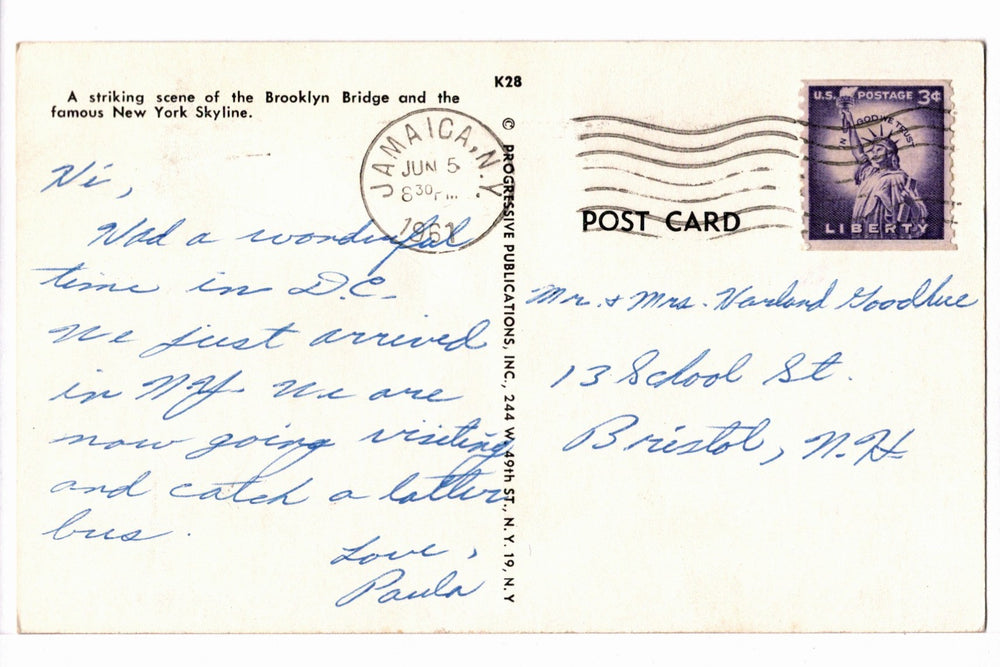 A striking scene of the Brooklyn Bridge and the
famous New York Skyline.
K28
Hi,
Had a wonderful
time in D.C.
We just arrived
in N.Y. We are
now going visiting
and catch a latter
bus.
Love,
Paula
© PROGRESSIVE PUBLICATIONS, INC., 244 W. 49th ST., N. Y. 19, N. Y.
JAMAICA, N.Y.
JUN 5
8 30 PM
1961
U.S. POSTAGE 3¢
IN GOD WE TRUST
LIBERTY
POST CARD
Mr. & Mrs. Harland Goodhue
13 School St.
Bristol, N.H.